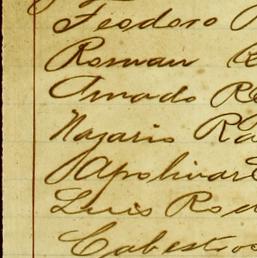 Teodoro R
Roman R
Amado Re
Nazario Ra
Apolinar
Luis Rod
Cabestros